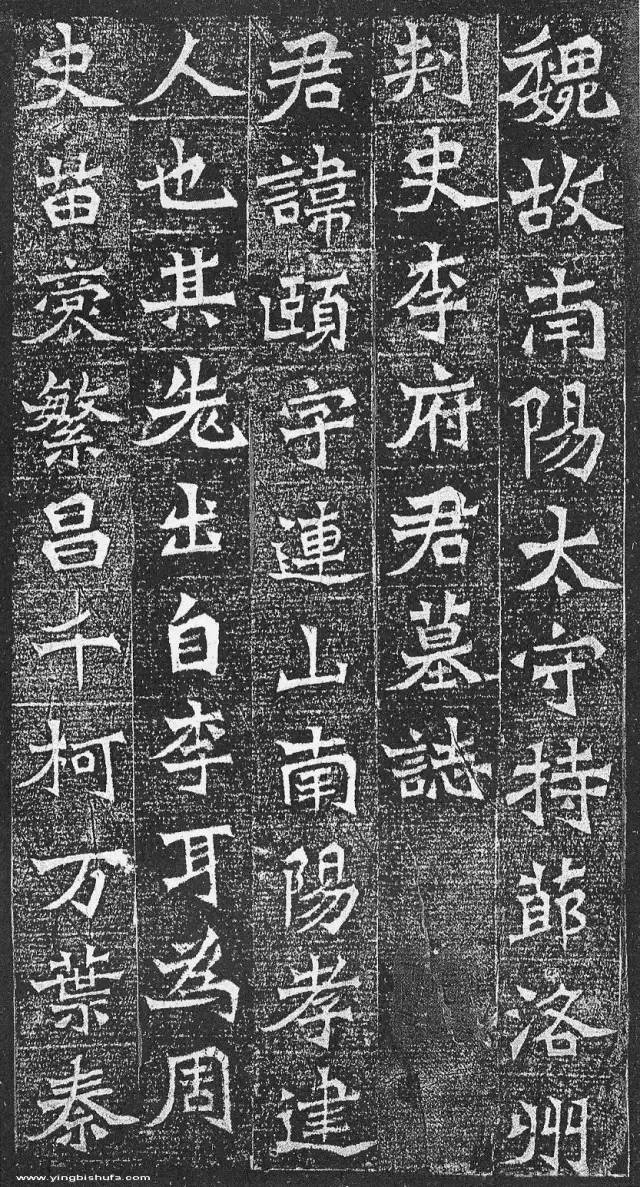 魏故南陽太守持莭洛州
刾史李府君墓誌
君諱頤字連山南陽孝建
人也其先出自李耳為周
史苗裔繁昌千柯万葉秦
www.yingbishufa.com